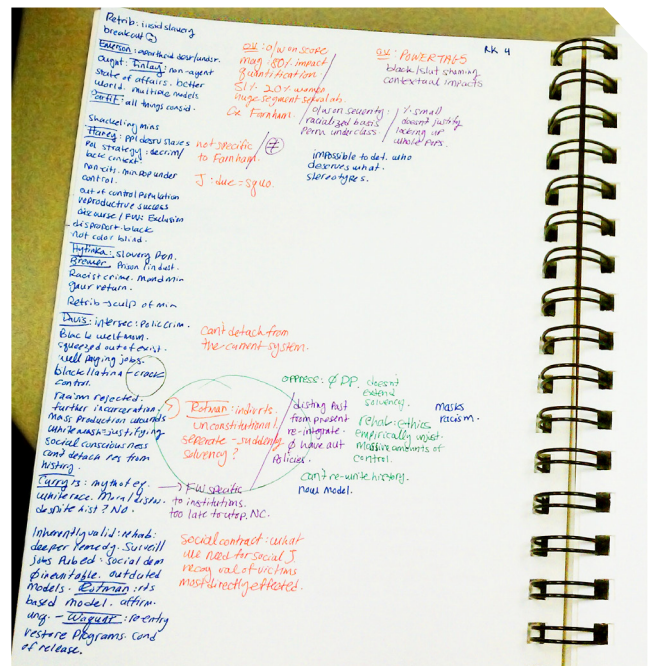 Retrib: insid slavery
breakout
Emerson: apartheid
Ought: Finlay: non-agent
state of affairs. better
world. multiple models
all things consid.
Shackeling mins
Haney: ppl desrv slaves
Pol strategy: decrim/
back context
non-cits. min pop under
control.
out of control population
reproductive success
discourse/FW: Exclusion
disproport. black
not color blind.
Hylinka: slavery Pen.
Brewer: Prison/indust.
Racist crime. mand min
gaur return.
Retrib → sculp of min
Davis: intersec: Pol crim.
Black welf mom.
squeezed out of exist.
well paying jobs.
black/latina - crack
control.
racism rejected.
further incarceration.
Mass production wounds
whitewash = justifying
social consciousness
cant detach res from
history.
Curry is: myth of eq.
white race. Moral
despite hist? No.
Inherently valid: rehab:
deeper remedy. Surveill
jobs Pub ed: social dem
Ø inevitable. outdated
models. Rotman: rts
based model. affirm.
ung. - Waquat: re-entry
restore Programs. cond
of release.
o/w on scope
mag: 80% impact
quantification.
51% 20% women
huge segment
Ox Farnham.
o/w on severity:
racialized basis
Perm underclass
% small
doesnt justify
locking up
whole pers.
not specific
to Farnham.
J: due = squo.
impossible to det. who
deserves what.
stereotypes.
ov: POWERTAGS
black/slut shaming
contextual impacts
RK 4
cant detach from
the current system.
oppress: Ø DP. doesn't
extend
solvency.
Rotman: indiv rts.
unconstitutional.
generate - suddenly
solvency?
disting Past
from present
re-integrate.
Ø have aut
Policies.
rehab: ethics
empirically unjust.
Massive amounts of
control.
masks
racism.
cant re-write history.
new model.
→ FW specific
to institutions.
too late to utop. NC.
Social contract: what
we need for social J.
recog val of victims
most directly effected.